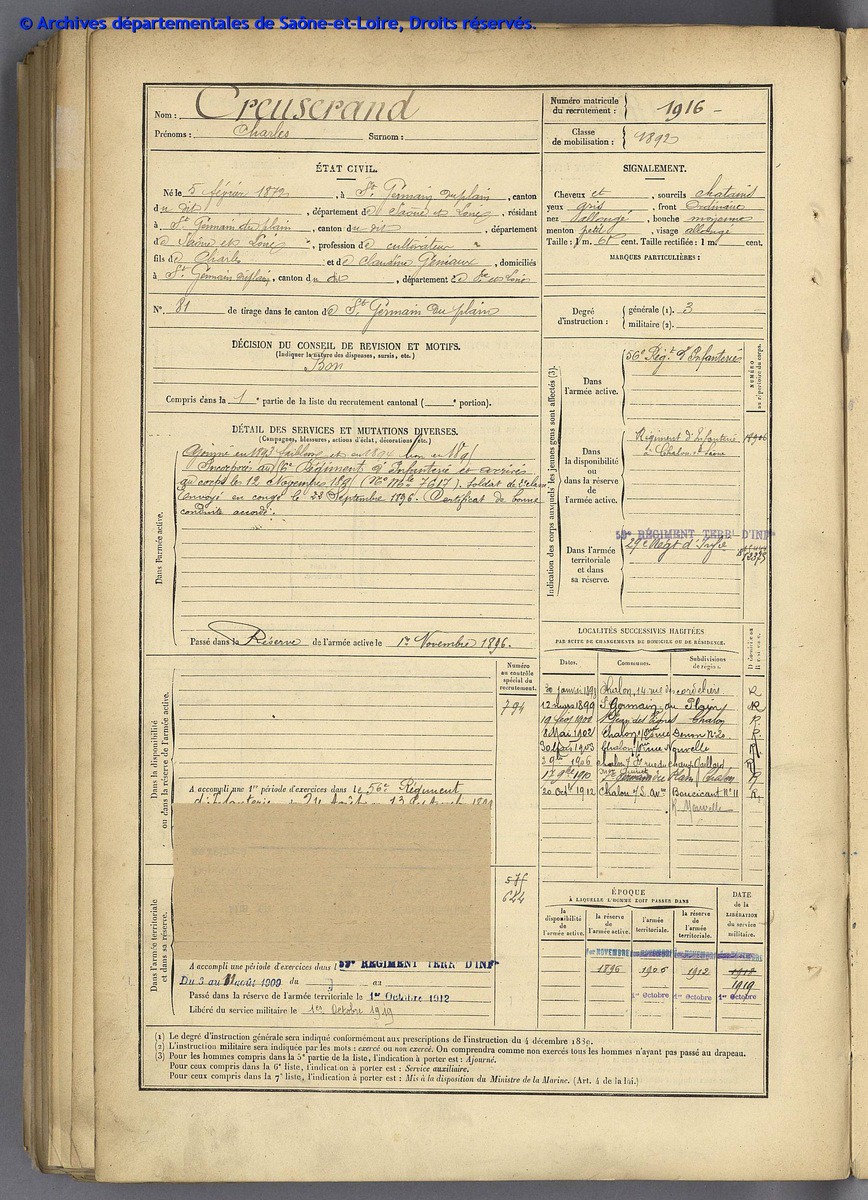 © Archives départementales de Saône-et-Loire, Droits réservés.
Nom : Creuserand
Prénoms : Charles Surnom :
Numéro matricule du recrutement : 1916
Classe de mobilisation : 1892
ÉTAT CIVIL.
Né le 5 février 1872, à St Germain du plain, canton
du dit, département de Saône et Loire, résidant
à St Germain du plain, canton du dit, département
de Saône et Loire, profession de cultivateur
fils de Charles et de Claudine Geniaux, domiciliés
à St Germain du plain, canton du dit, département de Sne et Loire
N° 81 de tirage dans le canton de St Germain du plain
SIGNALEMENT.
Cheveux et sourcils chatains
yeux gris, front Ordinaire
nez allongé, bouche moyenne
menton petit, visage allongé
Taille : 1 m. 61 cent. Taille rectifiée : 1 m cent.
MARQUES PARTICULIÈRES :
Degré d'instruction : générale (1). 3
militaire (2).
DÉCISION DU CONSEIL DE REVISION ET MOTIFS.
(Indiquer la nature des dispenses, sursis, etc.)
Bon
Compris dans la 1e partie de la liste du recrutement cantonal ( e portion).
DÉTAIL DES SERVICES ET MUTATIONS DIVERSES.
(Campagnes, blessures, actions d'éclat, décorations, etc.)
Ajourné en 1893 faiblesse et en 1894 bon en
Incorporé au Régiment d'Infanterie et arrivé
au corps le 12 Novembre (No Mle 7617). Soldat de 2e classe
Envoyé en congé le 22 Septembre 1896. Certificat de bonne
conduite accordé.
Dans l'armée active.
Passé dans la Réserve de l'armée active le 1er Novembre 1896.
Indication des corps auxquels les jeunes gens sont affectés (3).
NUMÉRO au répertoire du corps.
Dans l'armée active. 56e Régt d'Infanterie
Dans la disponibilité ou dans la réserve de l'armée active. Régiment d'Infanterie
de Chalon s Saône
Dans l'armée territoriale et dans sa réserve. 59e RÉGIMENT TERRal D'INFie
29e Régt d'Infie
LOCALITÉS SUCCESSIVES HABITÉES
PAR SUITE DE CHANGEMENTS DE DOMICILE OU DE RÉSIDENCE.
Dates. Communes. Subdivisions de région.
30 janvier Chalon, 14 rue des cordeliers R
12 mars 1899 St Germain du Plain R
Chalon R
8 Mai 1902 Chalon Denon No 20 R
30 1903 Chalon Nouvelle R
1906 Chalon
1910 St Germain du Plain Chalon R
20 Octe 1912 Chalon s/S. Boucicaut No 11 R
Numéro au contrôle spécial du recrutement.
794
Dans la disponibilité ou dans la réserve de l'armée active.
A accompli une 1re période d'exercices dans le 56e Régiment
575
644
Dans l'armée territoriale et dans sa réserve.
A accompli une période d'exercices dans l 59e RÉGIMENT TERRal D'INFie
Du 3 au 11 août 1909 du au
Passé dans la réserve de l'armée territoriale le 1er Octobre 1912
Libéré du service militaire le 1er Octobre 1919
ÉPOQUE
À LAQUELLE L'HOMME DOIT PASSER DANS
la disponibilité de l'armée active. la réserve de l'armée active. l'armée territoriale. la réserve de l'armée territoriale.
DATE de la LIBÉRATION du service militaire.
1er NOVEMBRE 1er NOVEMBRE 1er NOVEMBRE 1er NOVEMBRE
1896 1906 1912 1918
1919
1er Octobre 1er Octobre 1er Octobre
(1) Le degré d'instruction générale sera indiqué conformément aux prescriptions de l'instruction du 4 décembre 1889.
(2) L'instruction militaire sera indiquée par les mots : exercé ou non exercé. On comprendra comme non exercés tous les hommes n'ayant pas passé au drapeau.
(3) Pour les hommes compris dans la 5e partie de la liste, l'indication à porter est : Ajourné.
Pour ceux compris dans la 6e liste, l'indication à porter est : Service auxiliaire.
Pour ceux compris dans la 7e liste, l'indication à porter est : Mis à la disposition du Ministre de la Marine. (Art. 4 de la loi.)